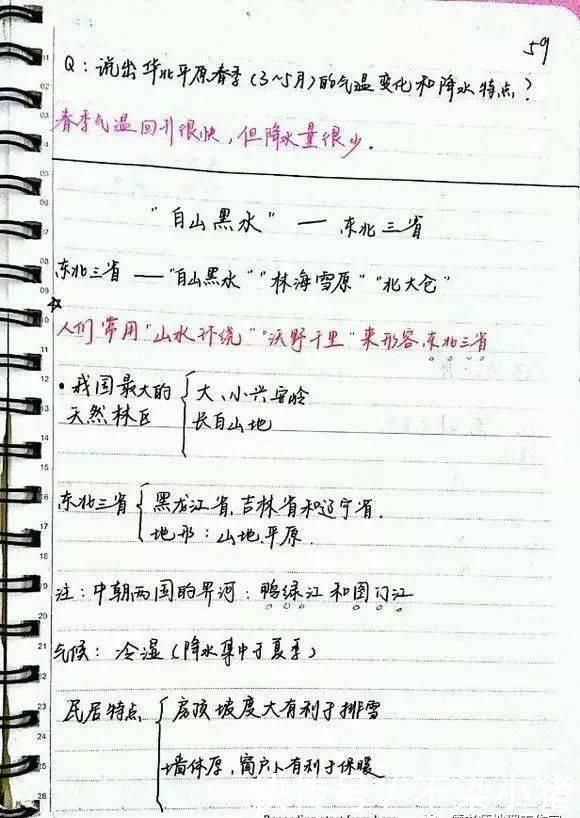 59
Q：说出华北平原春季(3~5月)的气温变化和降水特点？
春季气温回升很快，但降水量很少。
"白山黑水" — 东北三省
东北三省 — "白山黑水" "林海雪原" "北大仓"
☆
人们常用"山水环绕" "沃野千里"来形容东北三省
·我国最大的 { 大、小兴安岭
天然林区 长白山地
东北三省 { 黑龙江省，吉林省和辽宁省.
地形：山地.平原.
注：中朝两国的界河：鸭绿江和图们江
气候：冷湿(降水集中于夏季)
民居特点 { 房顶坡度大有利于排雪
墙体厚，窗户小有利于保暖